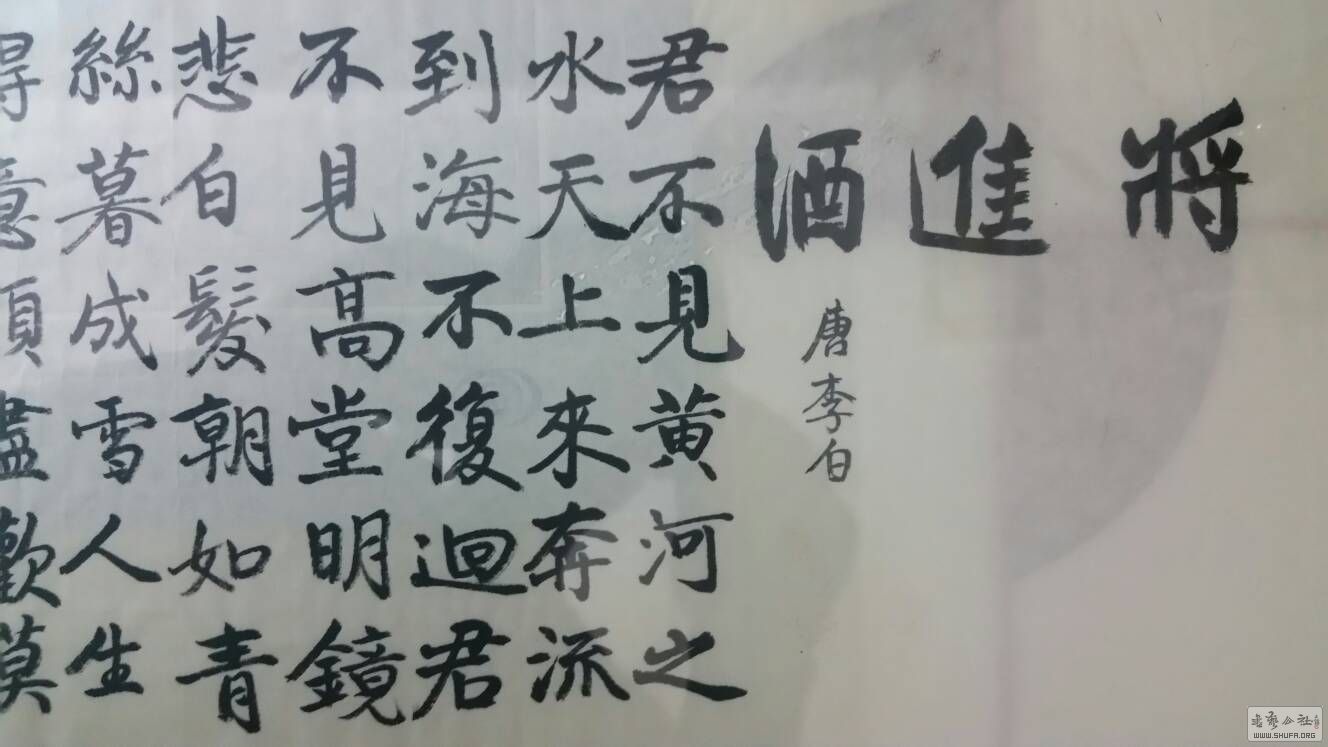 將進酒
唐李白
君不見黃河之
水天上來奔流
到海不復迴君
不見高堂明鏡
悲白髮朝如青
絲暮成雪人生
得意須盡歡莫
书艺公社
WWW.SHUFA.ORG